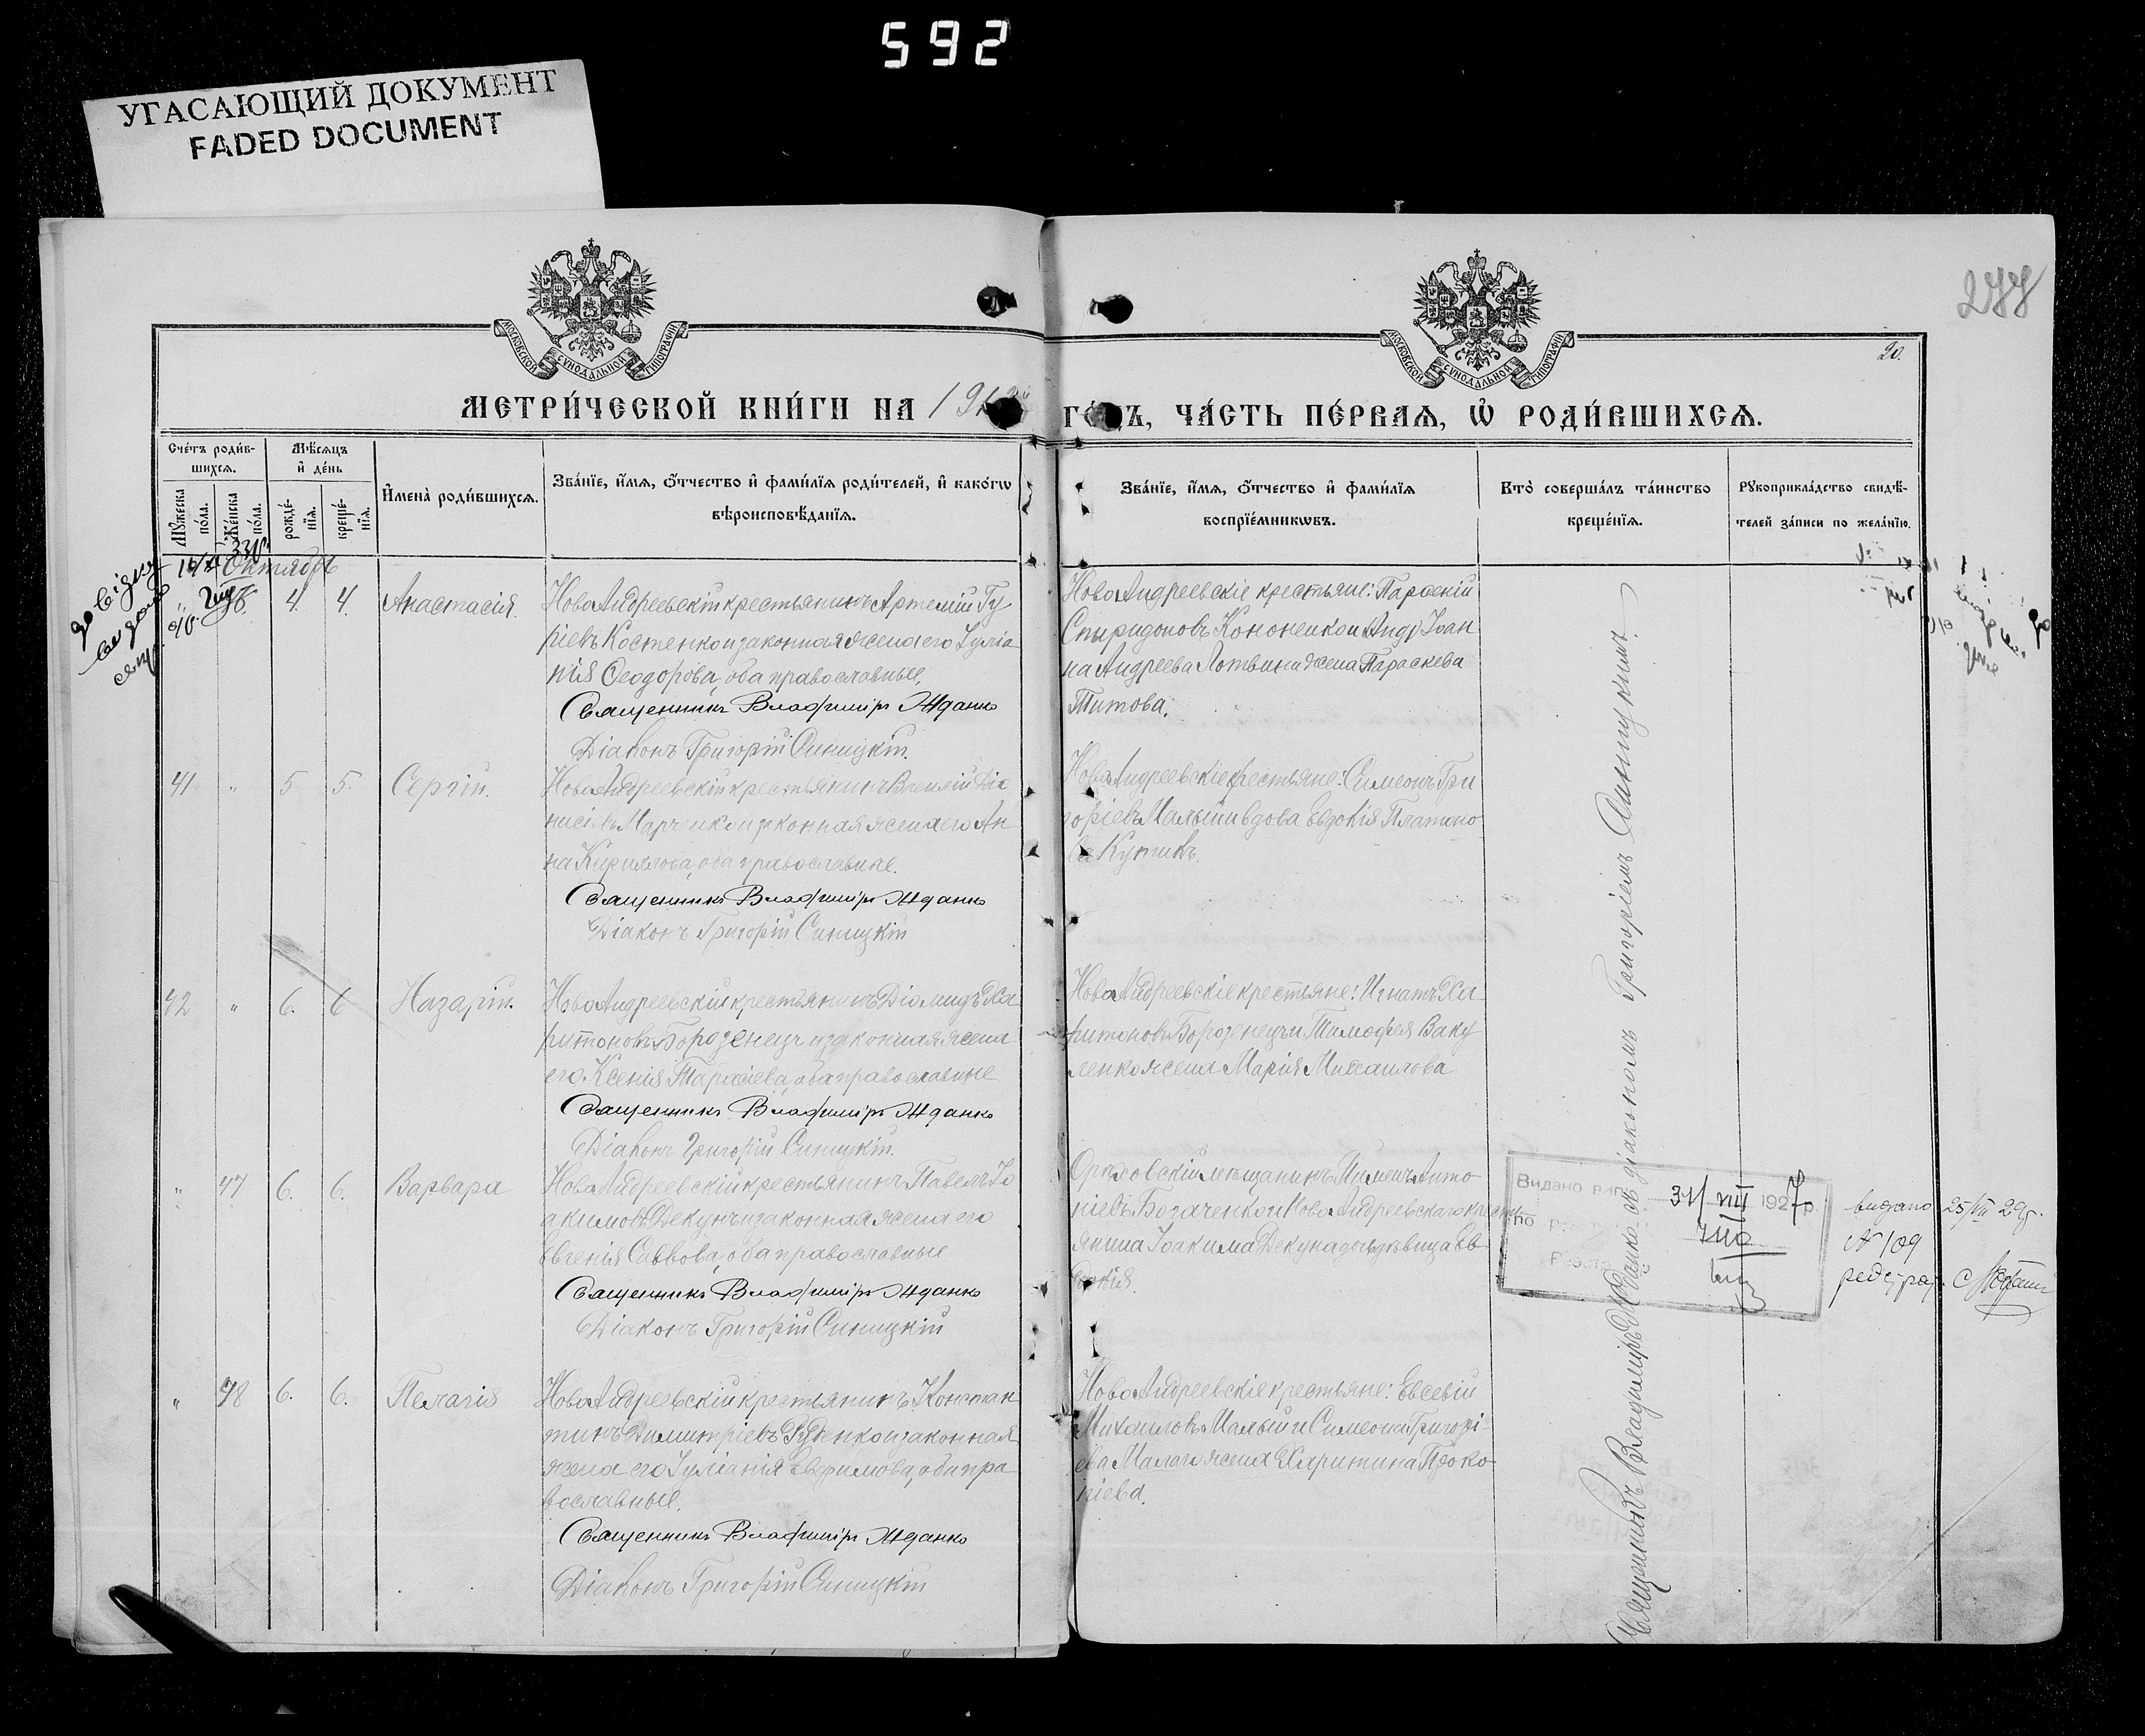 592
УГАСАЮЩИЙ ДОКУМЕНТ
FADED DOCUMENT
288
МОСКОВСКОЙ СѴНОДАЛЬНОЙ ТИПОГРАФІИ
МОСКОВСКОЙ СѴНОДАЛЬНОЙ ТИПОГРАФІИ
20.
МЕТРИ́ЧЕСКОЙ КНИ́ГИ НА 191
ГО́ДЪ, ЧА́СТЬ ПЕ́РВАѦ, Ѡ҆ РОДИ́ВШИХСѦ.
Сче́тъ роди́в-
шихсѧ.
Мѹ́жеска по́ла.
Же́нска по́ла.
Мѣ́сѧцъ
и҆ де́нь
рожде́-
нїѧ.
креще́-
нїѧ.
И҆мена̀ роди́вшихсѧ.
Зва́нїе, и҆́мѧ, ѻ҆́тчество и҆ фами́лїѧ роди́телей, и҆ како́гѡ
вѣ́роисповѣ́данїѧ.
Зва́нїе, и҆́мѧ, ѻ҆́тчество и҆ фами́лїѧ
воспрїе́мникѡвъ.
Кто̀ соверша́лъ та́инство
креще́нїѧ.
Рѹкоприкла́дство свидѣ́-
телей за́писи по жела́нїю.
Октябрь
4. 4. Анастасія.
НовоАндреевскій крестьянинъ Артемій Гу
ріевъ Костенко и законная жена его Іулiа
нія Ѳеодорова, оба православные.
Священникъ Владиміръ Жданко
Діаконъ Григорій Синицкій.
НовоАндреевскіе крестьяне: Параскій
Спиридоновъ Кононенко и Андр Іоан
на Андреева Литвина жена Параскева
Титова.
41 " 5 5. Сергій.
НовоАндреевскій крестьянинъ Василій Діо
нисіевъ Марченко и законная жена его Ан
на Кириллова, оба православные.
Священникъ Владиміръ Жданко
Діаконъ Григорій Синицкій
НовоАндреевскіе крестьяне: Симеонъ Гри
горіевъ Малый и вдова Евдокія Платоно
ва Кутикъ.
42 " 6. 6 Назарій.
НовоАндреевскій крестьянинъ Діомидъ Ха
ритоновъ Борозенецъ и законная жена
его Ксенія Тарасіева, оба православные
Священникъ Владиміръ Жданко
Діаконъ Григорій Синицкій.
НовоАндреевскіе крестьяне: Игнатъ Ха
ритоновъ Борозенецъ и Тимофея Ваку
ленко жена Марія Михаилова
" 47 6. 6. Варвара
НовоАндреевскій крестьянинъ Павелъ Іо
акимовъ Декунъ и законная жена его
Евгенія Саввова, оба православные
Священникъ Владиміръ Жданко
Діаконъ Григорій Синицкій
Орѣховскій мѣщанинъ Пименъ Анто
ніевъ Богаченко и НовоАндреевскаго кресть
янина Іоакима Декуна дочь дѣвица Ев
докія.
Видано вип. 31/VIII 1927 р.
видано 25/VII 29 р.
№ 109
" 48 6. 6. Пелагія
НовоАндреевскій крестьянинъ Констан
тинъ Димитріевъ Руденко и законная
жена его Іуліанія Евфимова, оба пра
вославные.
Священникъ Владиміръ Жданко
Діаконъ Григорій Синицкій
НовоАндреевскіе крестьяне: Евсевій
Михаиловъ Малый и Симеона Григорі-
ева Малаго жена Харитина Проко-
піева.
Священникъ Владиміръ Жданко съ діакономъ Григоріемъ Синицкимъ